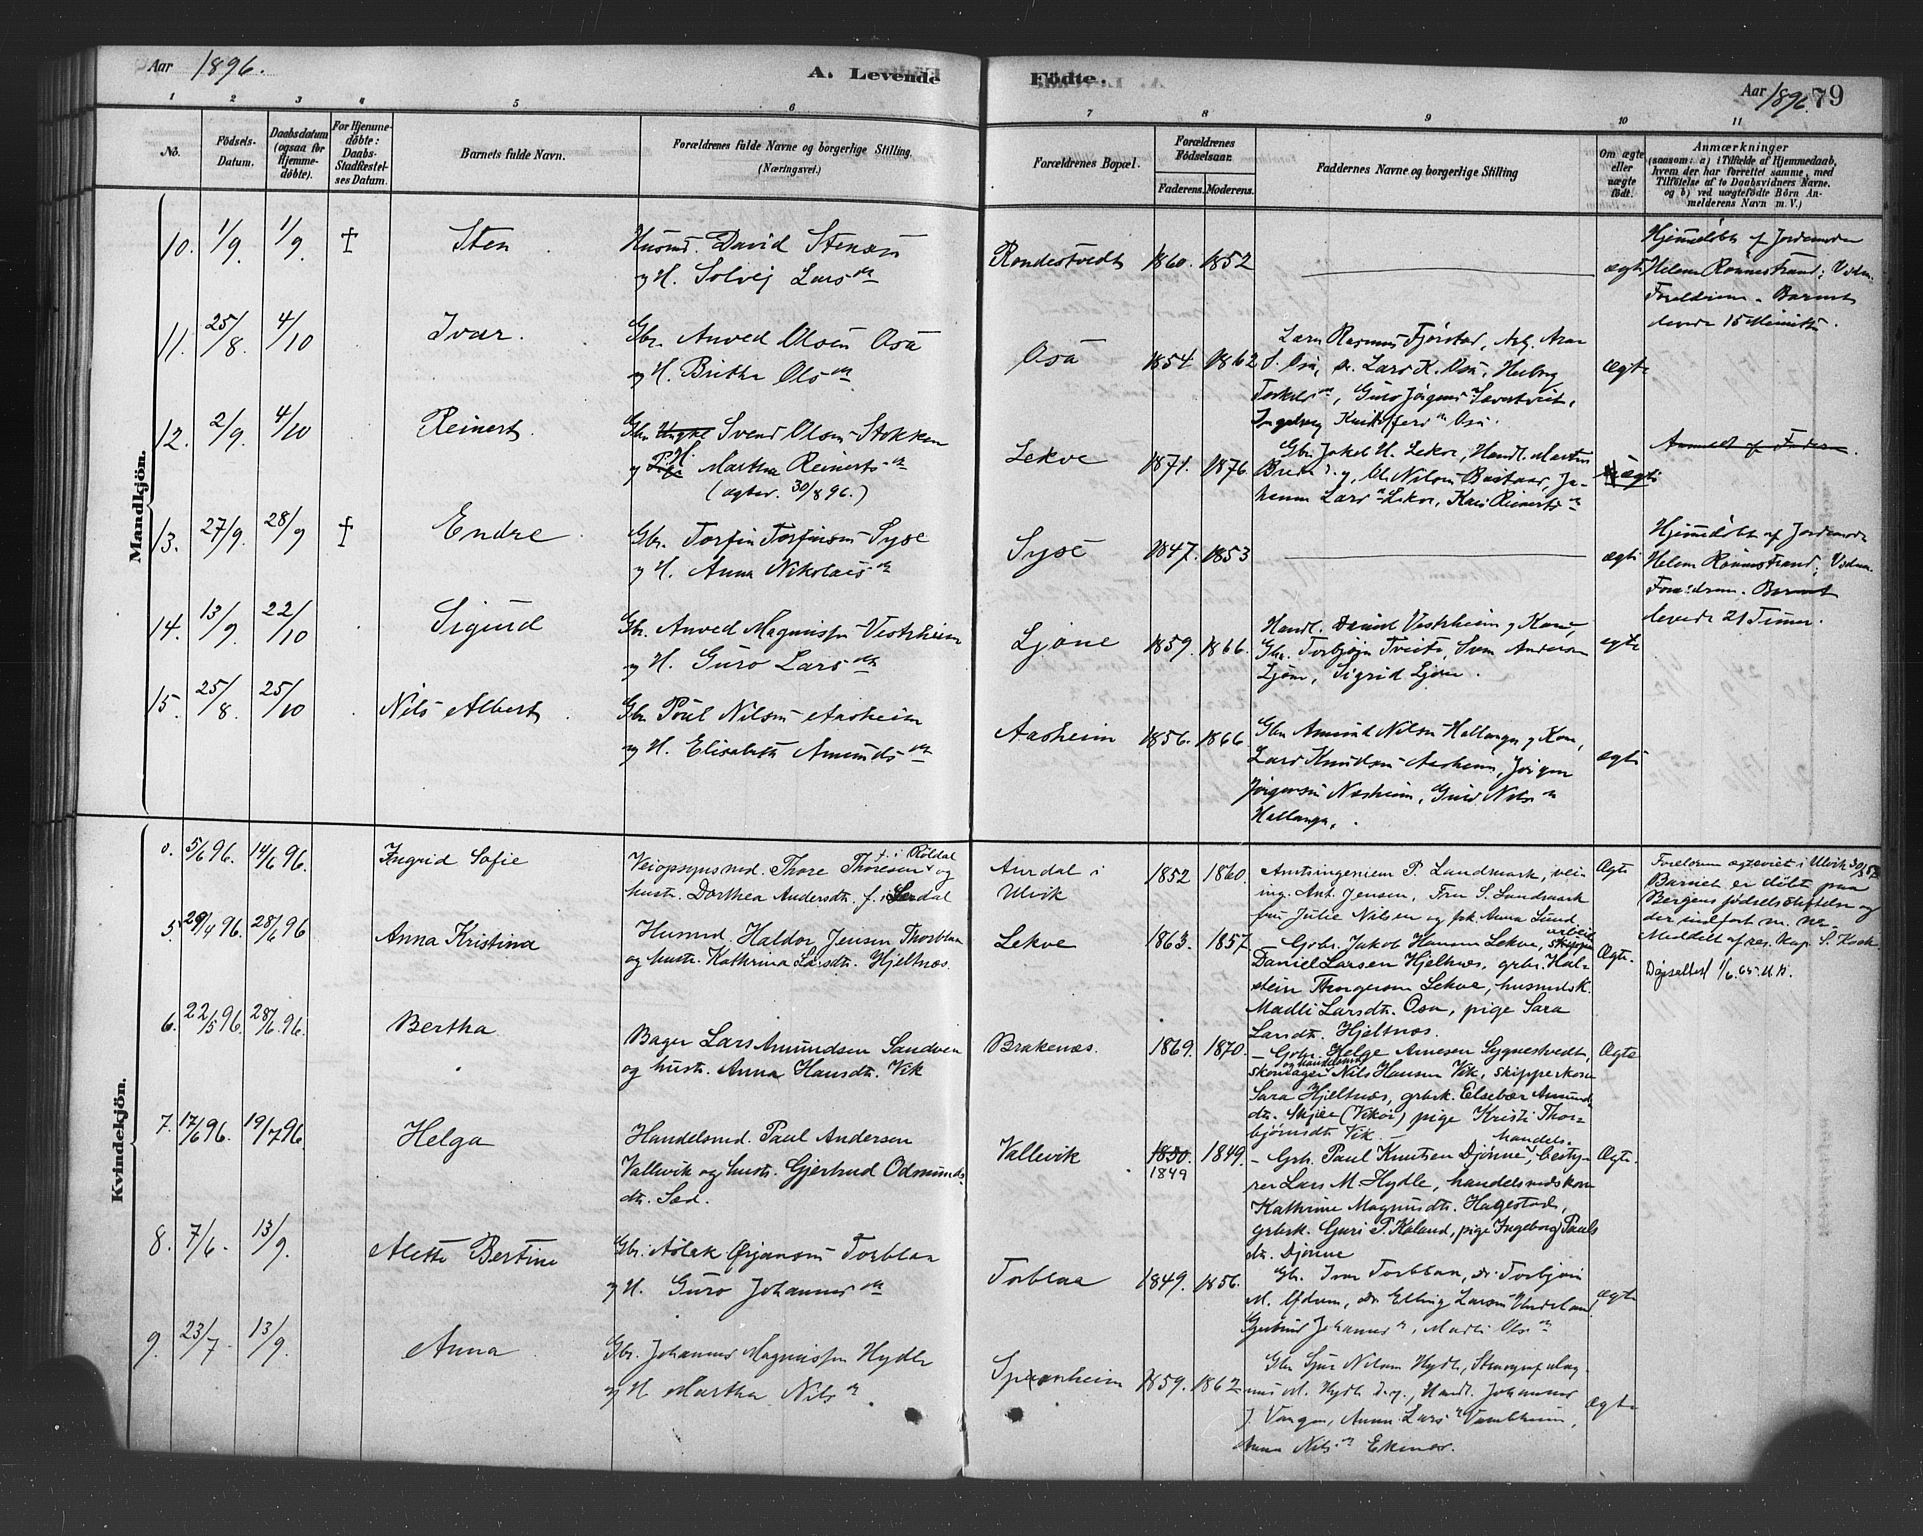 Aar 1896.
A. Levende Födte.
Aar 1896. 79
1 2 3 4 5 6 7 8 9 10 11
No.
Födsels-
Datum.
Daabsdatum
(ogsaa for
Hjemme-
döbte).
For Hjemme-
döbte:
Daabs-
Stadfæstel-
ses Datum.
Barnets fulde Navn.
Forældrenes fulde Navne og borgerlige Stilling.
(Næringsvei.)
Forældrenes Bopæl.
Forældrenes
Födselsaar.
Faderens. Moderens.
Faddernes Navne og borgerlige Stilling
Om ægte
eller
uægte
födt.
Anmærkninger
(saasom: a) i Tilfælde af Hjemmedaab,
hvem der har forrettet samme, med
Tilföielse af to Daabsvidners Navne.
og b) ved uægtefödte Börn An-
melderens Navn m. V.)
Mandkjön.
10. 1/9 1/9 † Sten
Husmd. David Stensen
og H. Solvej Lars dtr
Rondestvedt 1860. 1852 ægte
Hjemmedöbt af Jordemoder
Helene Rönnestrand; Vidner
Forældrene. Barnet
levede 15 Minutter.
11. 25/8 4/10 Ivar.
Gbr. Anved Olsen Osa
og H. Britha Ols dtr
Osa 1854. 1862 ægte
Lars Rasmus Fjörstad, Arb. Aron
S. Osa, do. Lars K. Osa, Herborg
Torkels dtr, Guro Jörgens Tveit,
Ingeborg Kristoffers dtr Osa.
12. 2/9 4/10 Reinert.
Gbr. Ungkl Svend Olsen Stokken
og Pige H. Martha Reinerts dtr
(ægtev. 30/8 96.)
Lekve 1871. 1876 ægte
Gbr. Jakob H. Lekve, Handl. Martin
Ole Nilsen Bustaar, Jo-
hanna Lars dtr Lekve, Kari Reinerts dtr
Anmeldt af Faderen.
13. 27/9. 28/9 † Endre
Gbr. Torfin Torfinsen Syse
og H. Anna Nikolais dtr
Syse 1847. 1853 ægte
Hjemmedöbt af Jordemoder
Helene Rönnestrand; Vidner
Forældrene. Barnet
levede 21 Timer.
14. 13/9 22/10 Sigurd
Gbr. Anved Magnussen Vestrheim
og H. Guro Lars dtr
Ljöne 1859. 1866. ægte
Handl. Daniel Vestrheim og Kone,
Gbr. Torbjörn Tveito, Sven Andersen
Ljöne, Sigrid Ljöne.
15. 25/8 25/10 Nils Albert
Gbr. Poul Nilsen Aasheim
og H. Elisabeth Amunds dtr
Aasheim 1856. 1866 ægte
Gbr. Amund Nilsen Hallanger og Kone,
Lars Knudsen Aasheim, Jörgen
Jörgensen Næsheim, Guro Nils dtr
Hallanger.
Kvindekjön.
0. 5/6 96. 14/6 96. Ingrid Sofie
Veiopsynsmd. Thore Thoresen f. i Röldal og
hustr. Dorthea Andersdtr. f. i Lerdal
Aurdal i
Ulvik
1852 1860. Ægte
Amtsingeniør P. Landmark, vei-
ing. Ant. Jensen, Fru S. Landmark
fru Julie Nilsen og frk Anna Lund
Forældrene ægteviet i Ulvik
Barnet er döbt paa
Bergens födselsstiftelse og
der indfört m. no.
Meddelt af res. kap. S. Koch
5. 29/4 96. 28/6 96 Anna Kristina
Husmd. Haldor Jensen Thorblaa
og hustr. Kathrina Larsdtr. Hjeltnæs.
Lekve 1863. 1857 Ægte.
– Gbr. Jakob Hansen Lekve, arbeid.
Daniel Larsen Hjeltnæs, grbr. Hal-
stein Thorgersen Lekve, husmdsk.
Madli Larsdtr. Osa, pige Sara
Larsdtr. Hjeltnæs.
Dåpsattest 1/6. 65. M. H.
6. 22/5 96. 28/6. 96. Bertha
Bager Lars Amundsen Sandven
og hustr. Anna Hansdtr. Vik
Brakenæs. 1869. 1870. Ægte
– Gbr. Helge Arnesen Sygnestvedt,
skomager og handelsmd Nils Hansen Vik, skipperskone
Sara Hjeltnæs, grbrk. Elsebær Amunds-
dtr. Skjeie (Vikör) pige Kristi Thor-
björnsdtr Vik. –
7. 17/6 96. 19/7 96. Helga
Handelsmd. Paul Andersen
Vallevik og hustr. Gjertrud Odmunds-
dtr. Sæd.
Vallevik 1850. 1849 1849. Ægte.
– Grbr. Paul Knutsen Djönne, handels-
besty-
rer Lars M. Hydle, handelsmdskone
Kathrine Magnusdtr. Hagestad,
grbrk. Guri P. Kaland, pige Ingeborg Pauls-
dtr. Djönne
8. 7/6. 13/9. Alette Bertine
Gbr. Aslak Örjansen Torblaa
og H. Guro Johannes dtr
Torblaa 1849. 1856. ægte
Gbr. Ivar Torblaa, do. Torbjörn
M. do. Elling Larsen Undeland
Gjertrud Johannes dtr, Marthe Ols dtr
9. 23/7 13/9. Anna
Gbr. Johannes Magnussen Hydle
og H. Martha Nils dtr
Spaanheim 1859. 1862 ægte
Gbr. Sjur Nilsen Hydle, Stenograf Mag-
nus M. Hydle Handl. Johannes
J. Vangen, Anna Lars dtr
Anna Nils dtr Ekenæs.